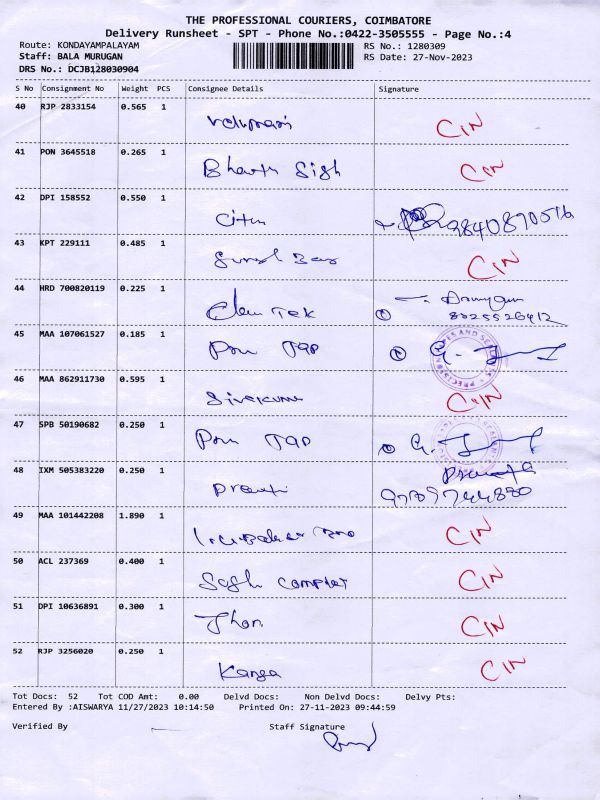 THE PROFESSIONAL COURIERS, COIMBATORE
Delivery Runsheet - SPT - Phone No.:0422-3505555 - Page No.:4
Route: KONDAYAMPALAYAM RS No.: 1280309
Staff: BALA MURUGAN RS Date: 27-Nov-2023
DRS No.: DCJB128030904
S No Consignment No Weight PCS Consignee Details Signature
40 RJP 2833154 0.565 1
CIN
41 PON 3645518 0.265 1
CIN
42 DPI 158552 0.550 1
9840870516
43 KPT 229111 0.485 1
CIN
44 HRD 700820119 0.225 1
8025526412
45 MAA 107061527 0.185 1
46 MAA 862911730 0.595 1
CIN
47 SPB 50190682 0.250 1
48 IXM 505383220 0.250 1
9789744880
49 MAA 101442208 1.890 1
CIN
50 ACL 237369 0.400 1
CIN
51 DPI 10636891 0.300 1
CIN
52 RJP 3256020 0.250 1
Kanga CIN
Tot Docs: 52 Tot COD Amt: 0.00 Delvd Docs: Non Delvd Docs: Delvy Pts:
Entered By :AISWARYA 11/27/2023 10:14:50 Printed On: 27-11-2023 09:44:59
Verified By Staff Signature